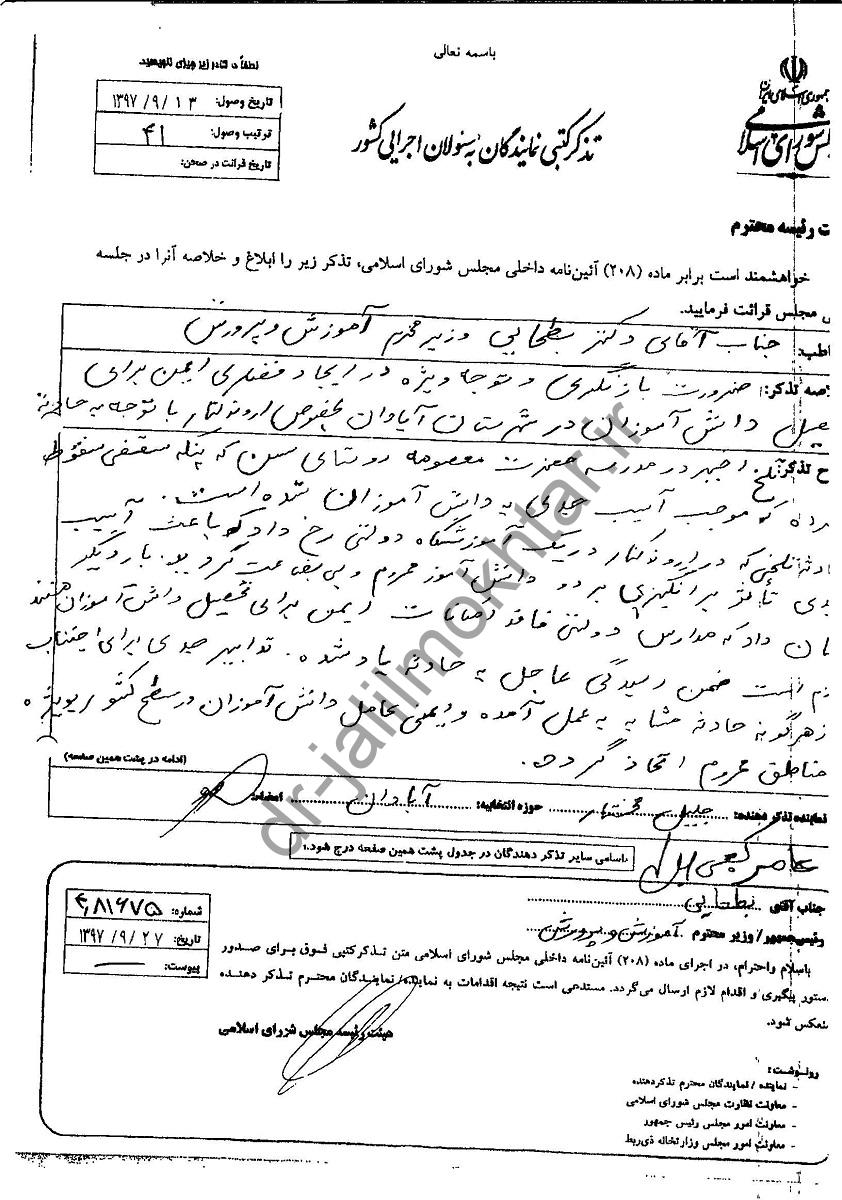 باسمه تعالی
جمهوری اسلامی ایران
شورای اسلامی
تاریخ وصول: ۱۳۹۷/۹/۱۳
ترتیب وصول: ۴۱
تاریخ قرائت در صحن:
تذکر کتبی نمایندگان به مسئولان اجرایی کشور
ت رئیسه محترم
خواهشمند است برابر ماده (۲۰۸) آئین‌نامه داخلی مجلس شورای اسلامی، تذکر زیر را ابلاغ و خلاصه آنرا در جلسه
مجلس قرائت فرمایید.
اطب: جناب آقای دکتر بطحایی وزیر محترم آموزش و پرورش
صه تذکر: ضرورت بازنگری و توجه ویژه در ایجاد فضای ایمن برای
دانش آموزان در شهرستان آبادان بخصوص اروندکنار با توجه به حادثه
ح تذکر: تلخ اخیر در مدرسه حضرت معصومه روستای که پنکه سقفی سقوط
که موجب آسیب جدی به دانش آموزان شده است.
تلخی که در اروندکنار در یک آموزشگاه دولتی رخ داد که باعث آسیب
تأثر برانگیزی بر دو دانش آموز محروم و بی بضاعت گردید. بار دیگر
داد که مدارس دولتی فاقد امکانات ایمن برای تحصیل دانش آموزان هستند
است ضمن رسیدگی عاجل به حادثه یاد شده. تدابیر جدی برای اجتناب
هرگونه حادثه مشابه به عمل آمده و ایمنی کامل دانش آموزان در سطح کشور بویژه
مناطق محروم اتخاذ گردد.
(ادامه در پشت همین صفحه)
نماینده تذکر دهنده: جلیل مختار حوزه انتخابیه: آبادان امضاء:
عامر کعبی
اسامی سایر تذکر دهندگان در جدول پشت همین صفحه درج شود.
شماره: ۴۸۱۶۷۵
تاریخ: ۱۳۹۷/۹/۲۷
پیوست: —
جناب آقای بطحایی
رئیس‌جمهور/ وزیر محترم آموزش و پرورش
باسلام واحترام، در اجرای ماده (۲۰۸) آئین‌نامه داخلی مجلس شورای اسلامی متن تذکر کتبی فوق برای صدور
ستور پیگیری و اقدام لازم ارسال می‌گردد. مستدعی است نتیجه اقدامات به نماینده/ نمایندگان محترم تذکر دهنده
نعکس شود.
هیئت رئیسه مجلس شورای اسلامی
رونوشت:
- نماینده / نمایندگان محترم تذکردهنده
- معاونت نظارت مجلس شورای اسلامی
- معاونت امور مجلس رئیس جمهور
- معاونت امور مجلس وزارتخانه ذی‌ربط
dr-jalilmokhtar.ir